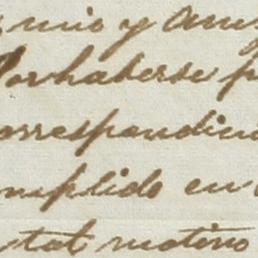 mio y am
Por haberse p
orrespondin
mplido en
tal motivo